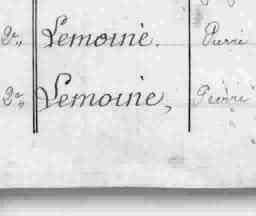 2e,, Lemoine. Pierre
2e,, Lemoine, Pierre